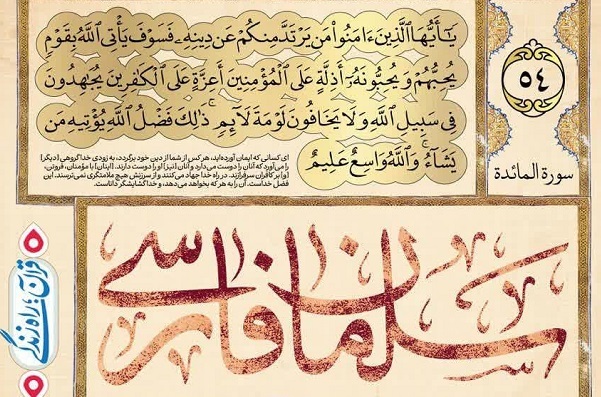 يَٰٓأَيُّهَا ٱلَّذِينَ ءَامَنُوا۟ مَن يَرْتَدَّ مِنكُمْ عَن دِينِهِۦ فَسَوْفَ يَأْتِى ٱللَّهُ بِقَوْمٍ
يُحِبُّهُمْ وَيُحِبُّونَهُۥٓ أَذِلَّةٍ عَلَى ٱلْمُؤْمِنِينَ أَعِزَّةٍ عَلَى ٱلْكَٰفِرِينَ يُجَٰهِدُونَ
فِى سَبِيلِ ٱللَّهِ وَلَا يَخَافُونَ لَوْمَةَ لَآئِمٍ ۚ ذَٰلِكَ فَضْلُ ٱللَّهِ يُؤْتِيهِ مَن
يَشَآءُ ۚ وَٱللَّهُ وَٰسِعٌ عَلِيمٌ
ای کسانی که ایمان آورده‌اید، هر کس از شما از دین خود برگردد، به زودی خدا گروهی [دیگر]
را می‌آورد که آنان را دوست می‌دارد و آنان [نیز] او را دوست دارند. [اینان] با مؤمنان، فروتن،
[و] بر کافران سرفرازند. در راه خدا جهاد می‌کنند و از سرزنش هیچ ملامتگری نمی‌ترسند. این
فضل خداست. آن را به هر که بخواهد می‌دهد، و خدا گشایشگر داناست.
٥٤
سورة المائدة
سلمان فارسی
قرآن؛ راه زندگی